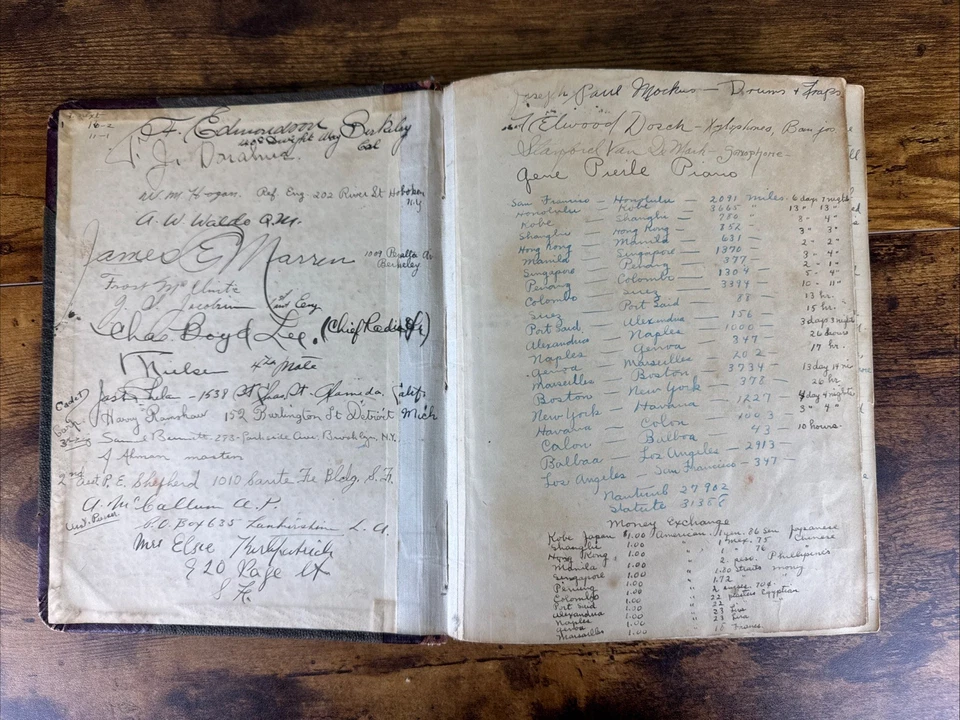 16-2
11-1
J. F. Edmondson Berkeley
Dwight Way Cal
T. J. Donahue
W. M. Hogan. Ref. Eng. 202 River St Hoboken
N.J.
A. W. Waldo Q.M.
James E Marren 1009 Peralta Av
Berkeley
Frost
Eng
Chas. Boyd Lee. (Chief Radio
Nielsen 4th Mate
Cadet
1538 St Chas. St. Alameda, Calif.
Harry Ranshaw 152 Burlington St Detroit Mich
Samuel Bennett. 273 Parkside Ave. Brooklyn, N.Y.
J Ahman master
2nd asst P. E. Shepherd 1010 Santa Fe Bldg. S. F.
A. McCallum A. P.
asst. Purser
P.O. Box 635 Lankershim L. A.
Mrs Elsie Thirkpatrick
920 Page St
S F.
Joseph Paul Mockus — Drums & Traps
Elwood Dosch — Xylophones, Banjos
Van De Mark — Saxophone —
Gene Pierle Piano
San Francisco — Honolulu — 2091 miles. 6 days 1 night
Honolulu — Kobe — 3665 — 13 " 13 "
Kobe — Shanghi — 786 — 3 " 4 "
Shanghi — Hong Kong — 852 — 3 " 3 "
Hong Kong — Manila — 631 — 2 " 2 "
Manila — Singapore — 1370 — 3 " 4 "
Singapore — Penang — 377 — 2 " 1 "
Penang — Colombo — 1304 — 5 " 4 "
Colombo — Suez — 3394 — 10 " 11 "
Suez — Port Said — 88 — 13 hr.
Port Said — Alexandria — 156 — 15 hr.
Alexandria — Naples — 1000 — 3 days 3 nights
Naples — Genoa — 347 — 26 hours
Genoa — Marseilles — 202 — 17 hr.
Marseilles — Boston — 3734 — 13 day 14 ni
Boston — New York — 378 — 26 hr.
New York — Havana — 1227 — 4 day 4 nights
Havana — Colon — 1003 — 3 " 4 "
Colon — Balboa — 43 — 10 hours.
Balboa — Los Angeles — 2913 —
Los Angeles — San Francisco — 347 —
Nautical 27902
Statute
Money Exchange
Kobe Japan $1.00 American. 1 yen. 86 Sen Japanese
Shanghi 1.00 " 1 mex. 75 Chinese
Hong Kong 1.00 " 1 " 76 "
Manila 1.00 " 2 peso. Phillipines
Singapore 1.00 " 1.80 Straits money
Penang 1.00 " 1.72 " "
Colombo 1.00 "
Port Said 1.00 " 22 Egyptian
Alexandria 1.00 " 22 "
Naples 1.00 " 23 Lira
Genoa 1.00 " 23 Lira
Marseilles 1.00 " 15 Francs